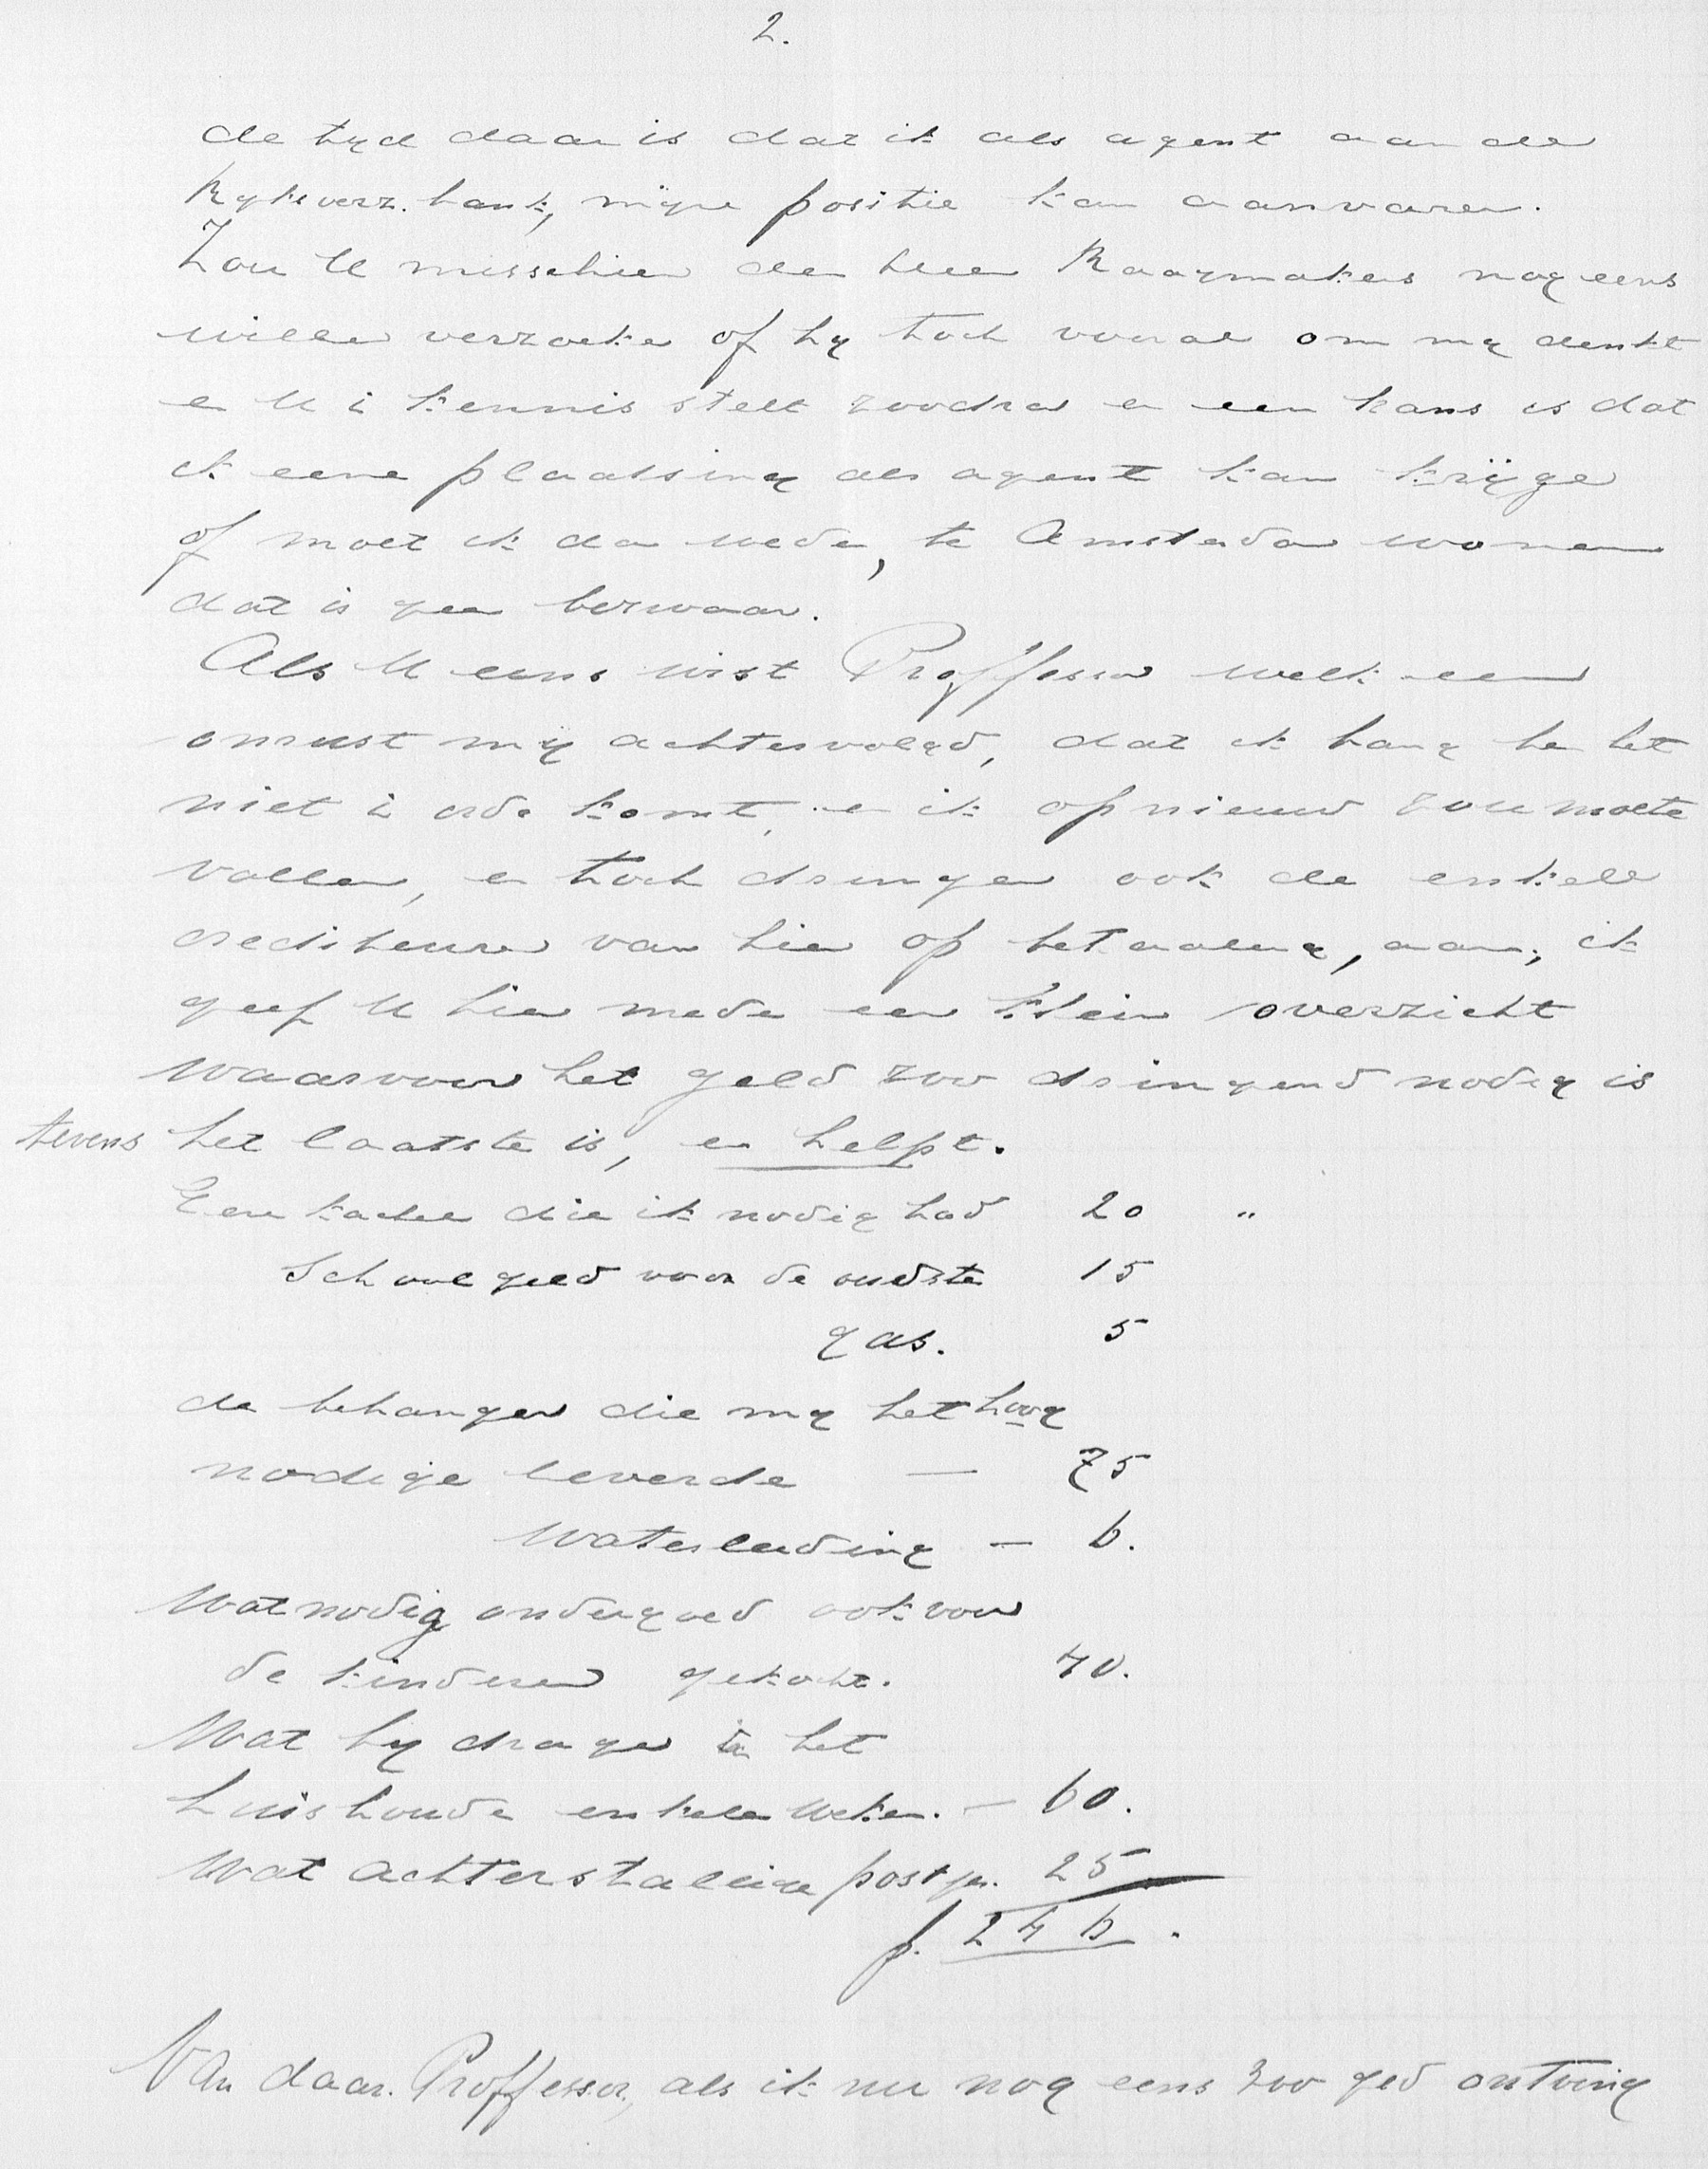 2.
de tijd daar is dat ik als agent aan de
Ryksverz. bank, mijne positie kan aanvaren.
Zou U misschien den heer Raaymakers nog eens
wille verzoeke of hy toch vooral om my denkt
en U i kennis stelt zoodra er een kans is dat
ik eene plaatsing als agent kan krijge
of moet ik dan weder, te Amsterdam wonen
dat is geen bezwaar.
Als U eens wist Proffessor welk een
onrust mij achtervolgd, dat ik bang ben het
niet i orde komt, en ik opnieuw zou moete
vallen, en toch dringen ook de enkele
crediteuren van hier op betaling, aan; ik
geef U hier mede een klein overzicht
waarvoor het geld zoo dringend nodig is
tevens het laatste is, en helpt.
Een kachel die ik nodig had 20 "
Schoolgeld voor de oudste 15
gas. 5
de behanger die my het hoog
nodige leverde — 75
Waterleiding — 6.
Wat nodig ondergoed ook voor
de kinderen gekocht. 40.
Wat by drage in het
huishoude enkele weken. — 60.
Wat achterstallige post 25
f. 246.
Van daar. Proffessor, als ik nu nog eens zoo ontving